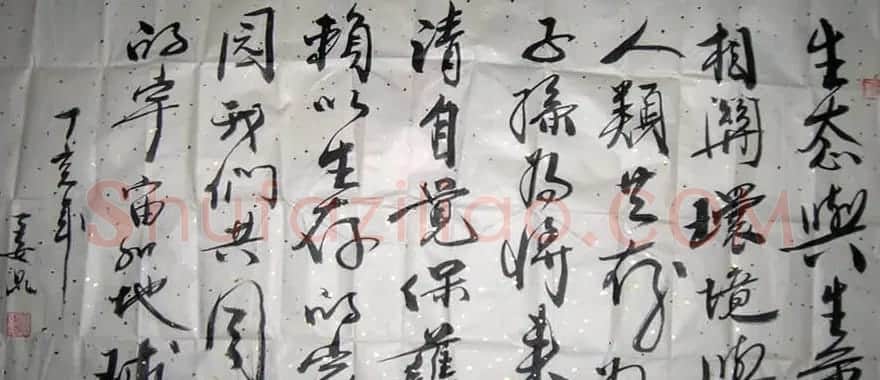 生态與生命
相關環境與
人類共存為
子孫為將來
清自覺保護
賴以生存的
园我們共同
的宇宙和地球
丁亥年
姜昆
Shufaziliao.com